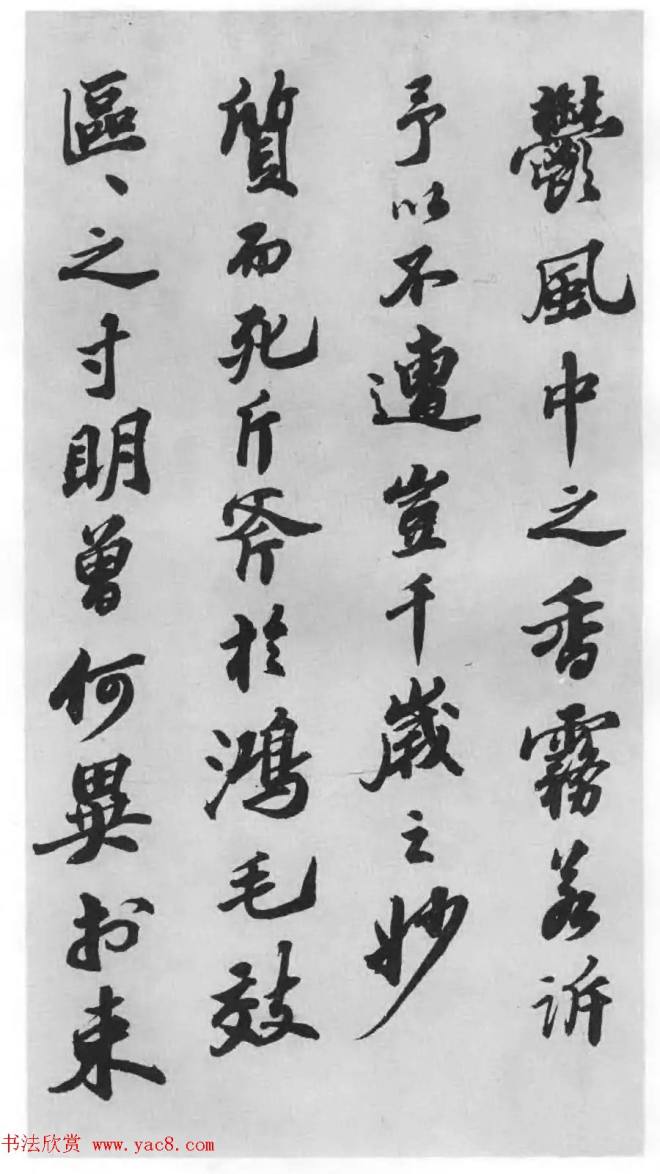 鬱風中之香霧若訴
予以不遭豈千歲之妙
質而死斤斧於鴻毛效
區〻之寸明曾何異於束
书法欣赏 www.yac8.com